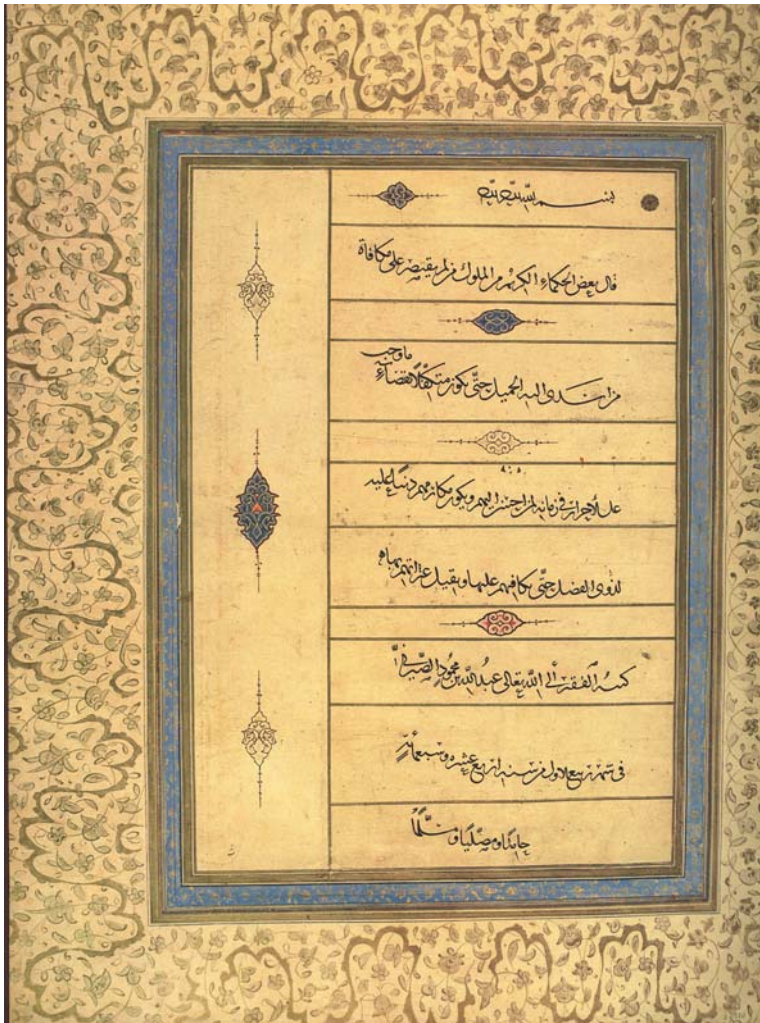 بسم الله
قال بعض الحكماء الكريم من الملوك من لم يقتصر على مكافاة
من اسدى اليه الجميل حتى يكون متكفلا بقضاء ما وجب
على الاحرار في زمانه لمن احسن اليهم ويكون مكارمهم دينا عليه
لذوي الفضل حتى يكافيهم عليها ويقيل عثراتهم بها
كتبه الفقير الى الله تعالى عبد الله بن محمود الصيرفي
في شهر ربيع الاول من سنه اربع عشره وسبعمائة
حامدا ومصليا ومسلما